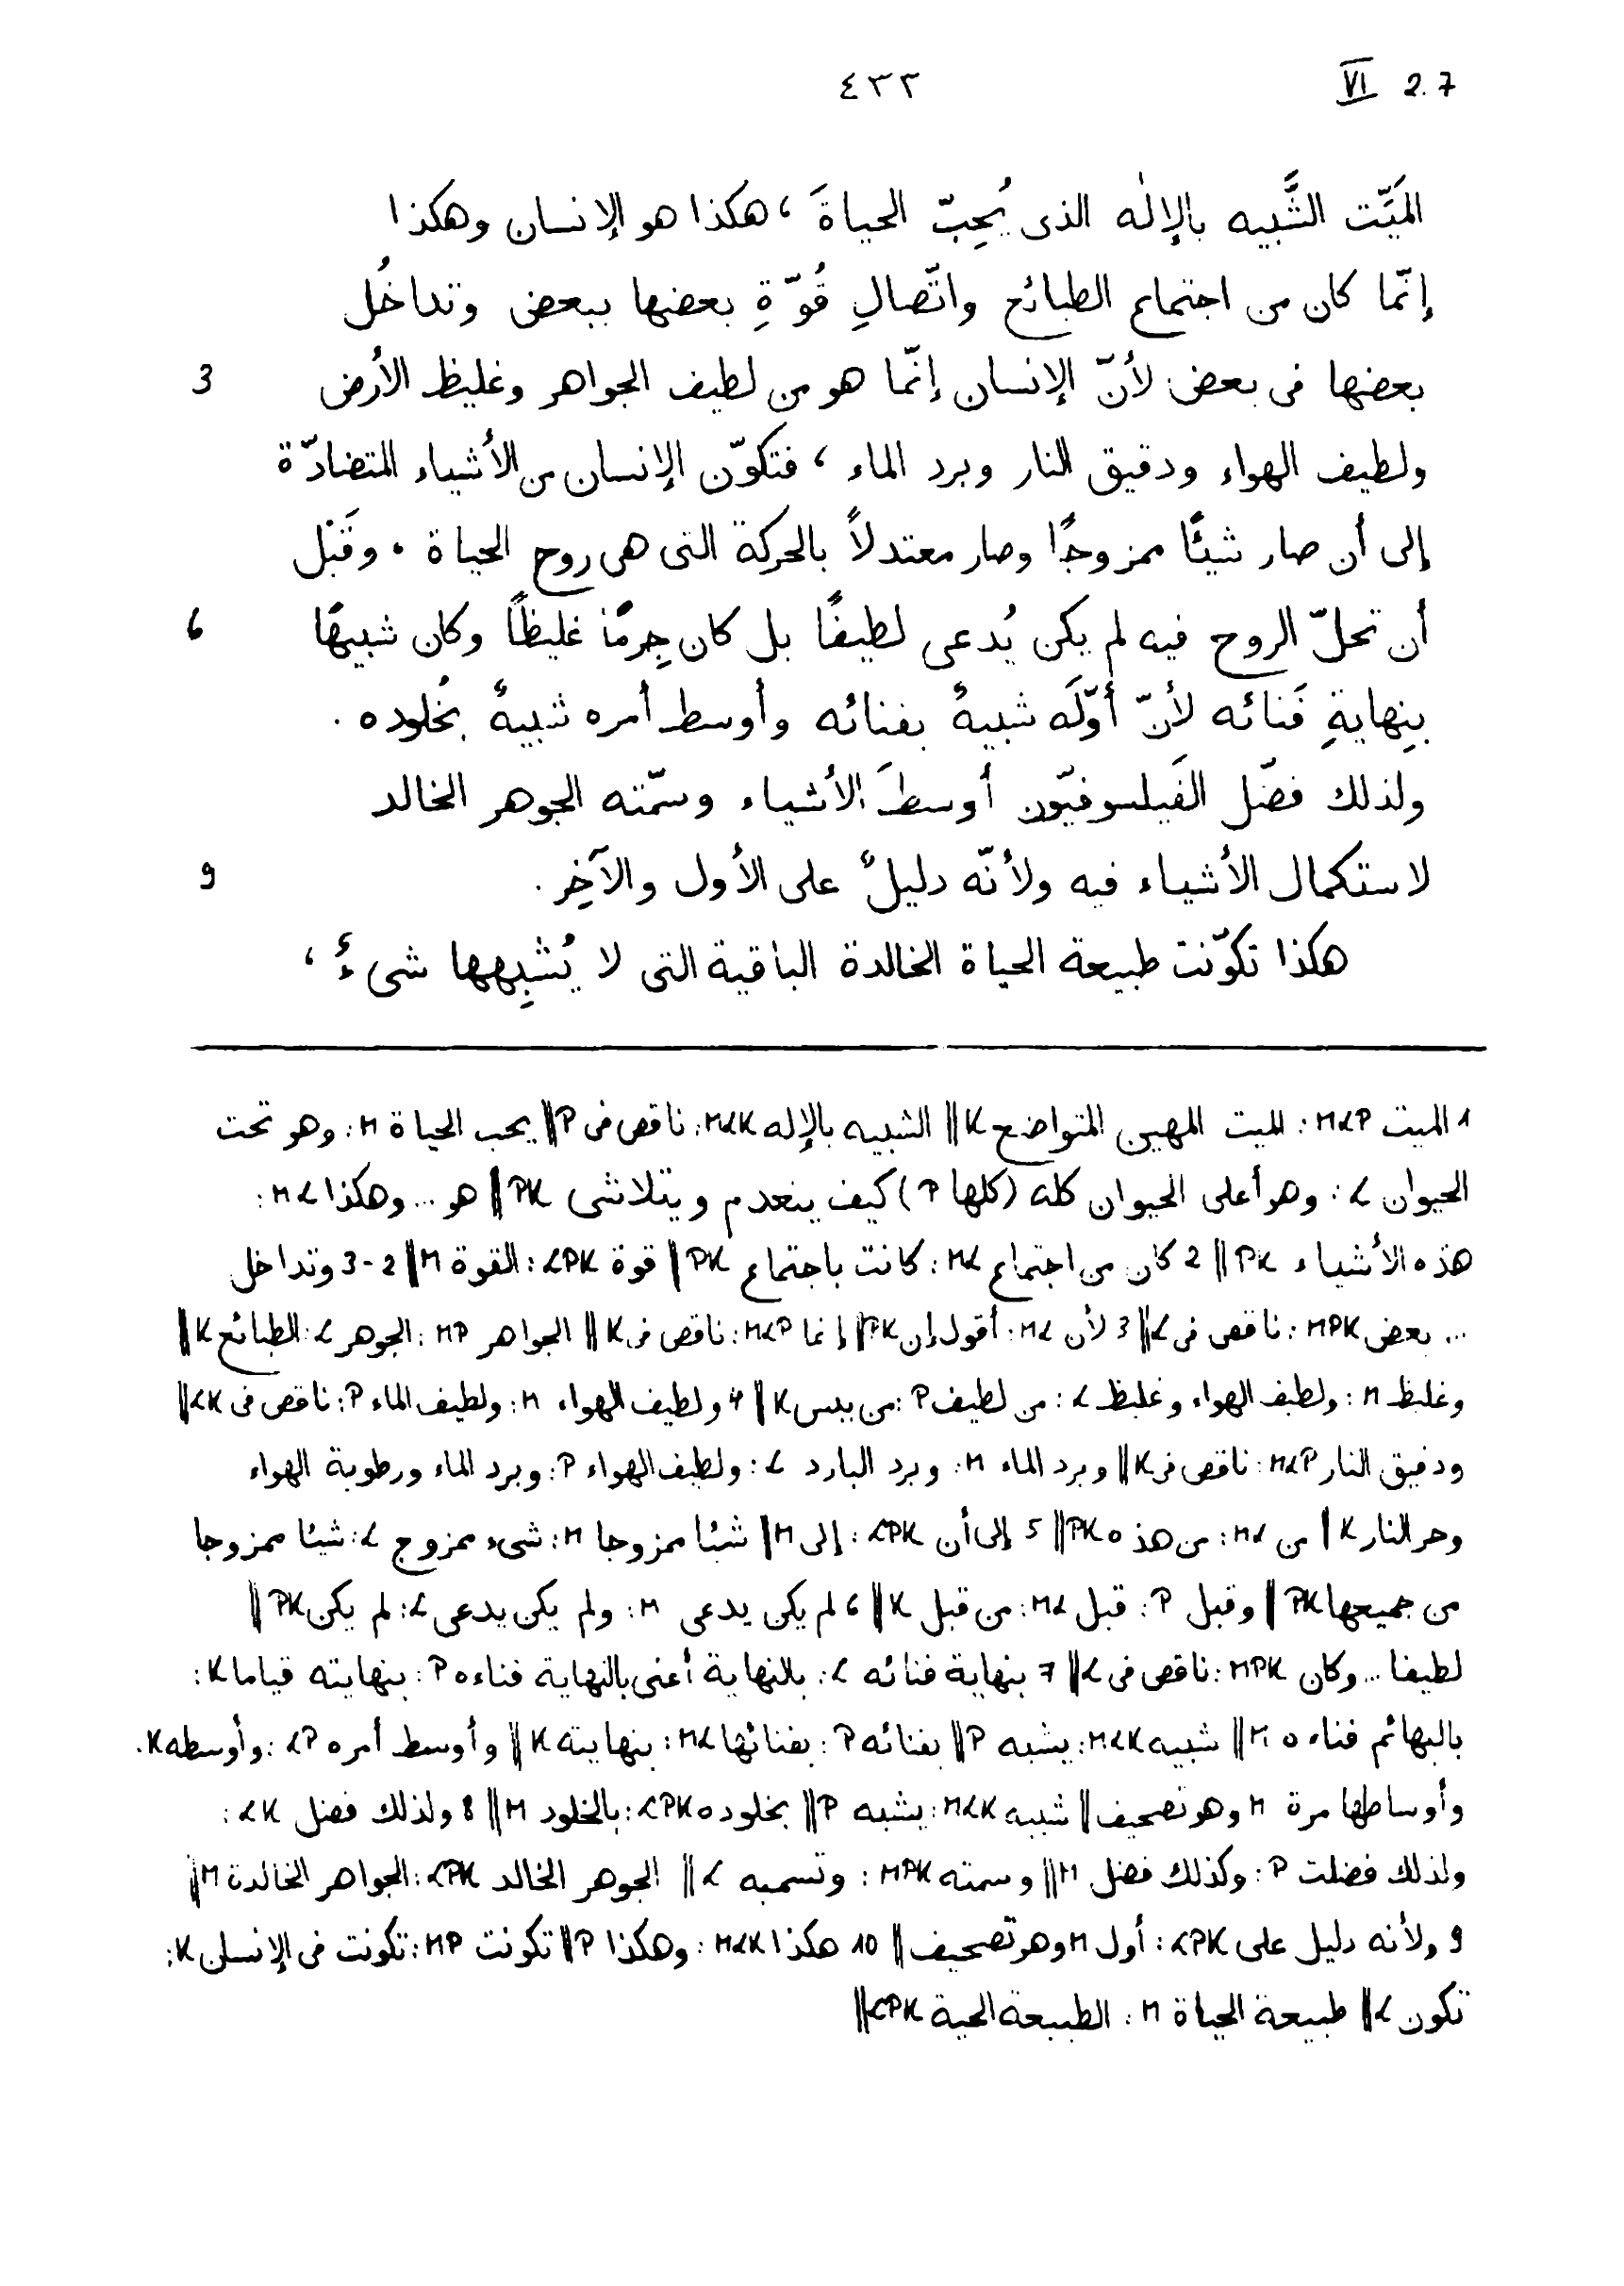 VI 2.7
٤٣٣
المَيّت الشَّبيه بالإلٰه الذى يُحِبّ الحياةَ ، هكذا هو الإنسان وهكذا
إنّما كان من اجتماع الطبائع واتّصالِ قُوّةِ بعضها ببعض وتداخُل
بعضها فى بعض لأنّ الإنسان إنّما هو من لطيف الجواهر وغليظ الأرض 3
ولطيف الهواء ودقيق النار وبرد الماء ، فتكوّن الإنسان من الأشياء المتضادّة
إلى أن صار شيئًا ممزوجًا وصار معتدلاً بالحركة التى هى روح الحياة . وقَبْل
أن تحلّ الروح فيه لم يكن يُدعى لطيفًا بل كان جِرمًا غليظًا وكان شبيهًا 6
بِنِهايةِ فَنائه لأنّ أوّلَه شبيهٌ بفنائه وأوسط أمره شبيهٌ بخُلوده .
ولذلك فضّل الفَيلسوفيّون أوسطَ الأشياء وسمّته الجوهر الخالد
لاستكمال الأشياء فيه ولأنّه دليلٌ على الأول والآخِر . 9
هكذا تكوّنت طبيعة الحياة الخالدة الباقية التى لا يُشبِهها شىءٌ ،
1 الميت MLP : الميت المهين المتواضع K || الشبيه بالإله MLK : ناقص فى P || يحب الحياة M : وهو تحت
الحيوان L : وهو أعلى الحيوان كله (كلها P) كيف ينعدم ويتلاشى PK || هو ... وهكذا ML :
هذه الأشياء PK || 2 كان من اجتماع ML : كانت باجتماع PK | قوة LPK : القوة M || 2-3 وتداخل
... بعض MPK : ناقص فى L || 3 لأن ML : أقول إن PK || إنما MLP : ناقص فى K || الجواهر MP : الجوهر L : الطبائع K ||
وغليظ M : ولطيف الهواء وغليظ L : من لطيف P : من يبس K || 4 ولطيف الهواء M : ولطيف الماء P : ناقص فى LK ||
ودقيق النار MLP : ناقص فى K || وبرد الماء M : وبرد البارد L : ولطيف الهواء P : وبرد الماء ورطوبة الهواء
وحر النار K | من ML : من هذه PK || 5 إلى أن LPK : إلى M || شيئا ممزوجا M : شىء ممزوج L : شيئا ممزوجا
من جميعها PK || وقبل P : قبل ML : من قبل K || 6 لم يكن يدعى M : ولم يكن يدعى L : لم يكن PK ||
لطيفا ... وكان MPK : ناقص فى L || 7 بنهاية فنائه L : بالنهاية أعنى بالنهاية فناءه P : بنهايته قياما K :
بالبهائم فناءه M || شبيه MLK : يشبه P || بفنائه P : بفنائها ML : بنهايته K || وأوسط أمره LP : وأوسطه K .
وأوساطها مرة M وهو تصحيف || شبيه MLK : يشبه P || بخلوده LPK : بالخلود M || 8 ولذلك فضل LK :
ولذلك فضلت P : وكذلك فضل M || وسمته MPK : وتسميه L || الجوهر الخالد LPK : الجواهر الخالدة M ||
9 ولأنه دليل على LPK : أول M وهو تصحيف || 10 هكذا MLK : وهكذا P || تكونت MP : تكونت فى الإنسان K :
تكون L || طبيعة الحياة M : الطبيعة الحية LPK ||